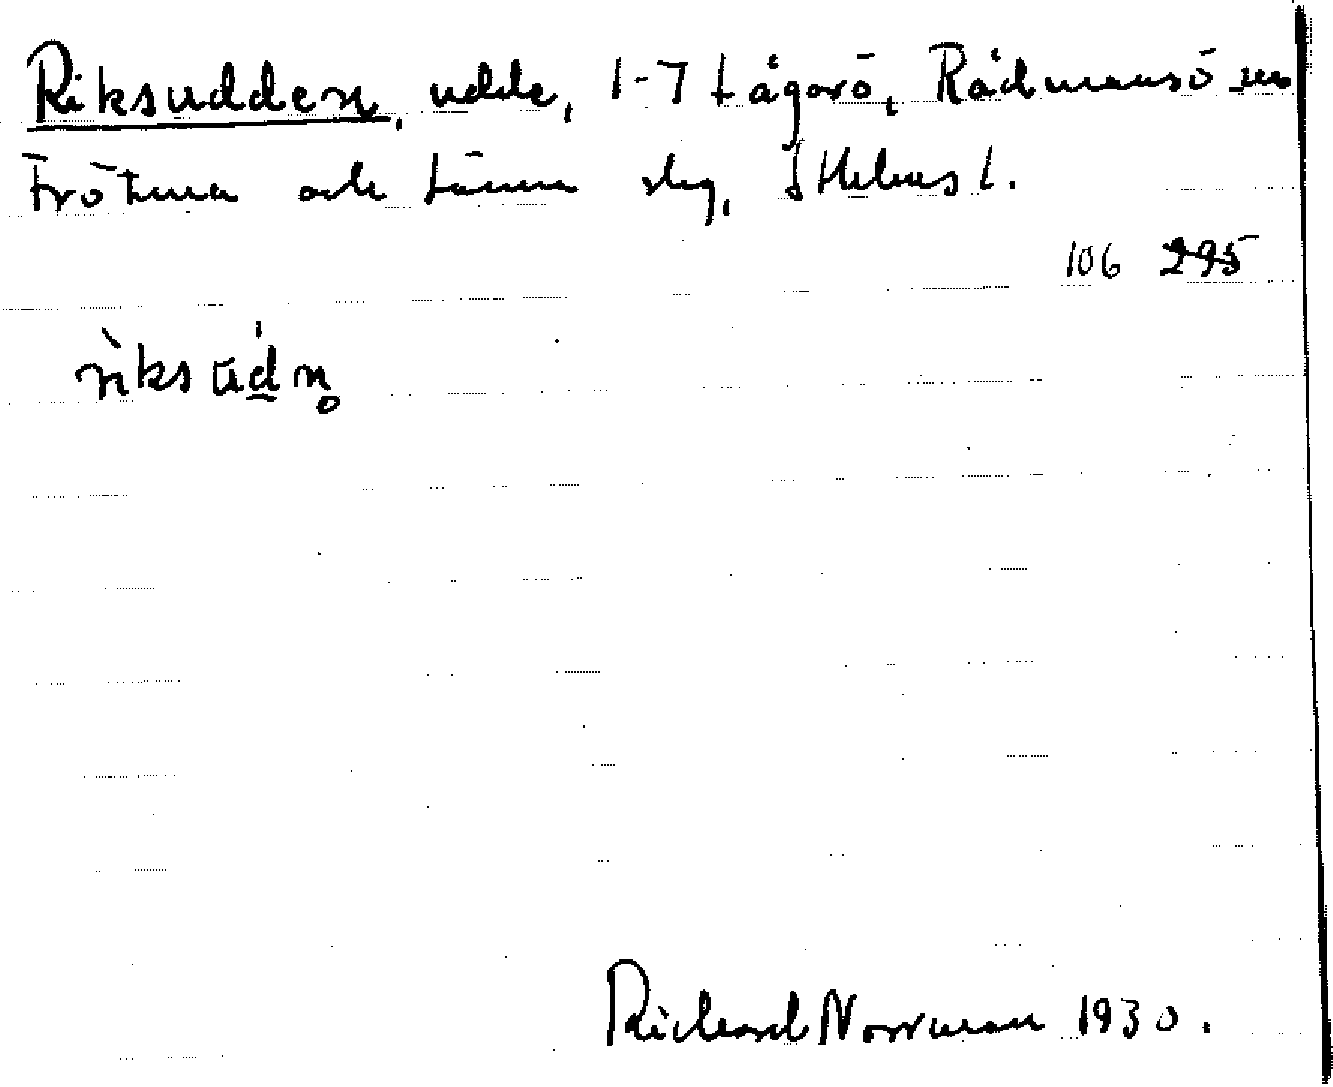 Riksudden, udde, 1-7 Lågarö, Rådmansö sn
Frötuna och Länna slg, Sthlms l.
106 295
riksu̇dn̥
Richard Norrman 1930.